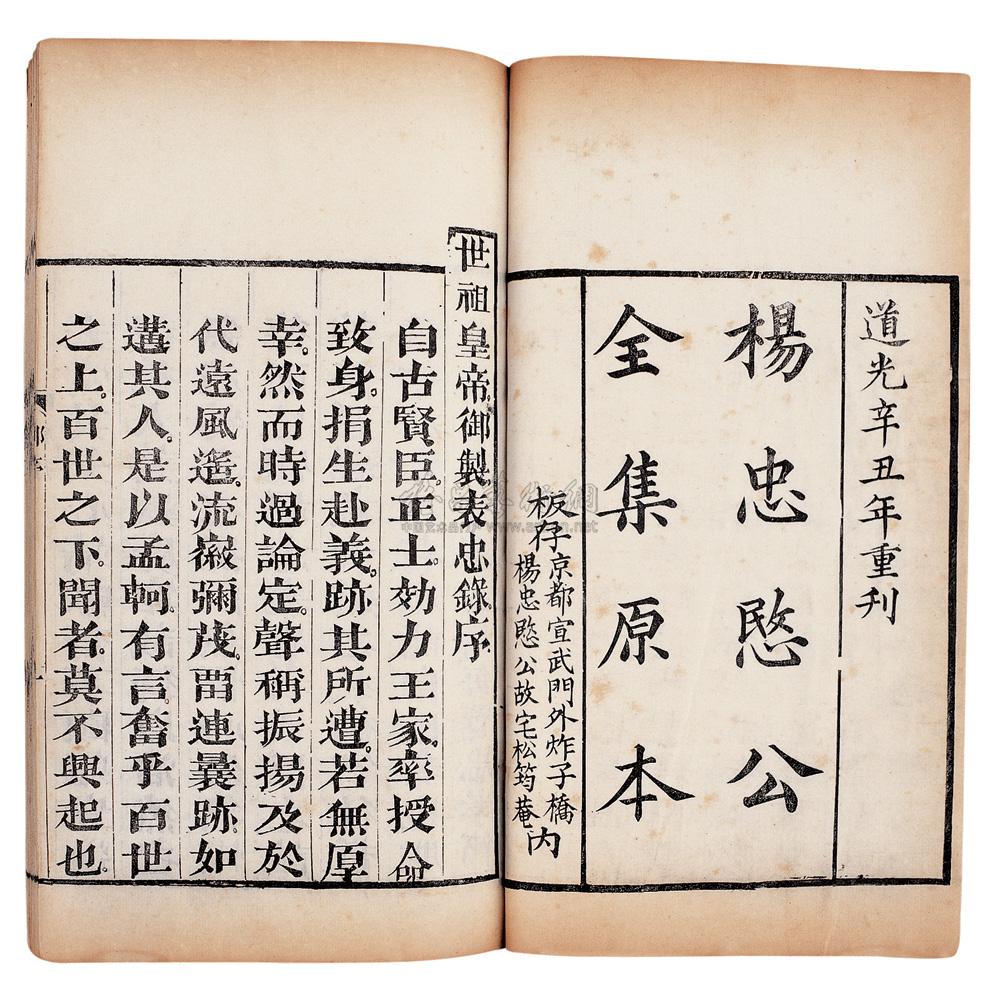 道光辛丑年重刋
楊忠愍公
全集原本
板存京都宣武門外炸子橋
楊忠愍公故宅松筠菴內
世祖皇帝御製表忠錄序
自古賢臣正士効力王家率授命
致身捐生赴義跡其所遭若無厚
幸然而時過論定聲稱振揚及於
代遠風遙流徽彌茂畱連曩跡如
遘其人是以孟軻有言奮乎百世
之上百世之下聞者莫不興起也